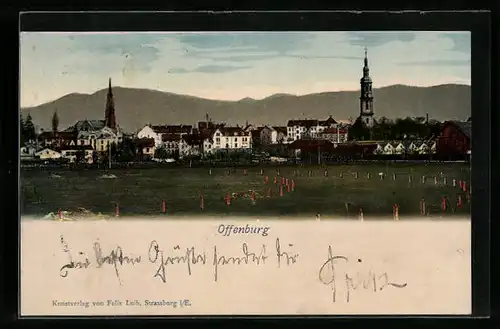 Offenburg
Die besten Grüße sendet dir Fritz
Kunstverlag von Felix Luib, Strassburg i/E.